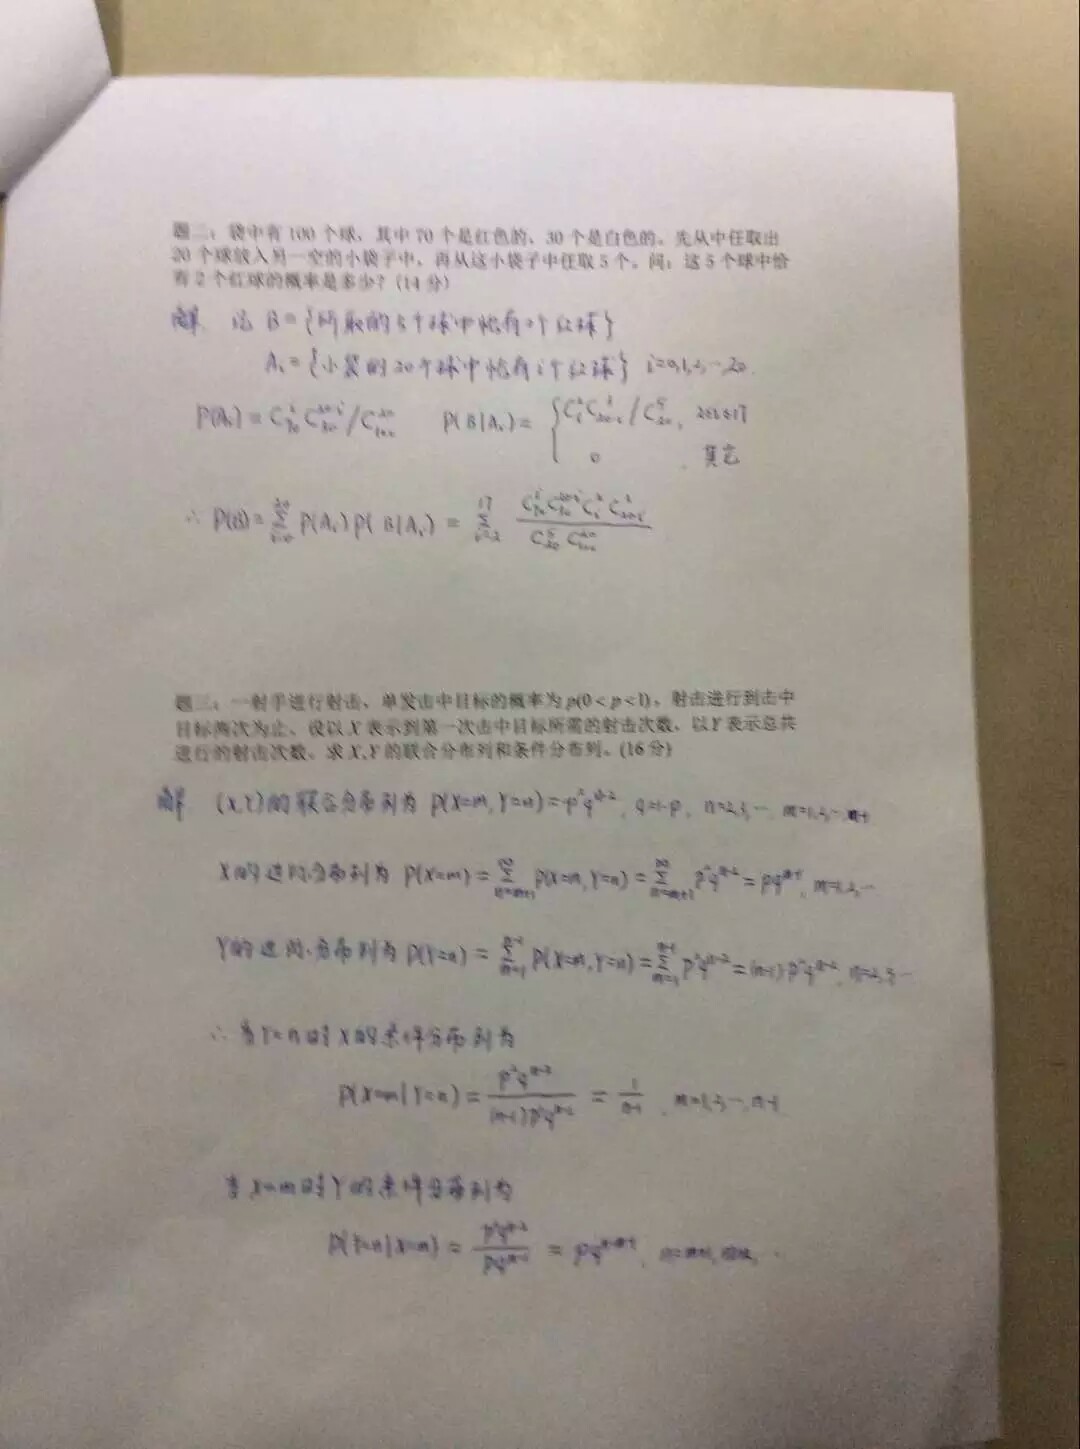 题二：袋中有 100 个球，其中 70 个是红色的、30 个是白色的。先从中任取出
20 个球放入另一空的小袋子中，再从这小袋子中任取 5 个。问：这 5 个球中恰
有 2 个红球的概率是多少？(14 分)
解. 记 B={所取的5个球中恰有2个红球}
Aᵢ={小袋的20个球中恰有i个红球} i=0,1,2,…,20.
P(Aᵢ)=C₇₀ⁱ C₃₀²⁰⁻ⁱ/C₁₀₀²⁰ P(B|Aᵢ)= { Cᵢ² C₂₀₋ᵢ³ / C₂₀⁵, 2≤i≤17
0 , 其它
∴ P(B)=∑ᵢ₌₀²⁰ P(Aᵢ)P(B|Aᵢ) = ∑ᵢ₌₂¹⁷ (C₇₀ⁱ C₃₀²⁰⁻ⁱ Cᵢ² C₂₀₋ᵢ³)/(C₂₀⁵ C₁₀₀²⁰)
题三：一射手进行射击、单发击中目标的概率为 p(0 < p < 1)，射击进行到击中
目标两次为止、设以 X 表示到第一次击中目标所需的射击次数、以 Y 表示总共
进行的射击次数、求 X,Y 的联合分布列和条件分布列。(16 分)
解 (X,Y)的联合分布列为 P(X=m, Y=n)=p²qⁿ⁻², q=1-p, n=2,3,…, m=1,2,…,n-1
X的边际分布列为 P(X=m)=∑ₙ₌ₘ₊₁^∞ P(X=m, Y=n)=∑ₙ₌ₘ₊₁^∞ p²qⁿ⁻²=pqᵐ⁻¹, m=1,2,…
Y的边际分布列为 P(Y=n)=∑ₘ₌₁ⁿ⁻¹ P(X=m, Y=n)=∑ₘ₌₁ⁿ⁻¹ p²qⁿ⁻²=(n-1)p²qⁿ⁻², n=2,3,…
∴ 当Y=n时X的条件分布列为
P(X=m|Y=n)=p²qⁿ⁻²/((n-1)p²qⁿ⁻²) = 1/(n-1) , m=1,2,…,n-1
当X=m时Y的条件分布列为
P(Y=n|X=m) = p²qⁿ⁻²/(pqᵐ⁻¹) = pqⁿ⁻ᵐ⁻¹, n=m+1,